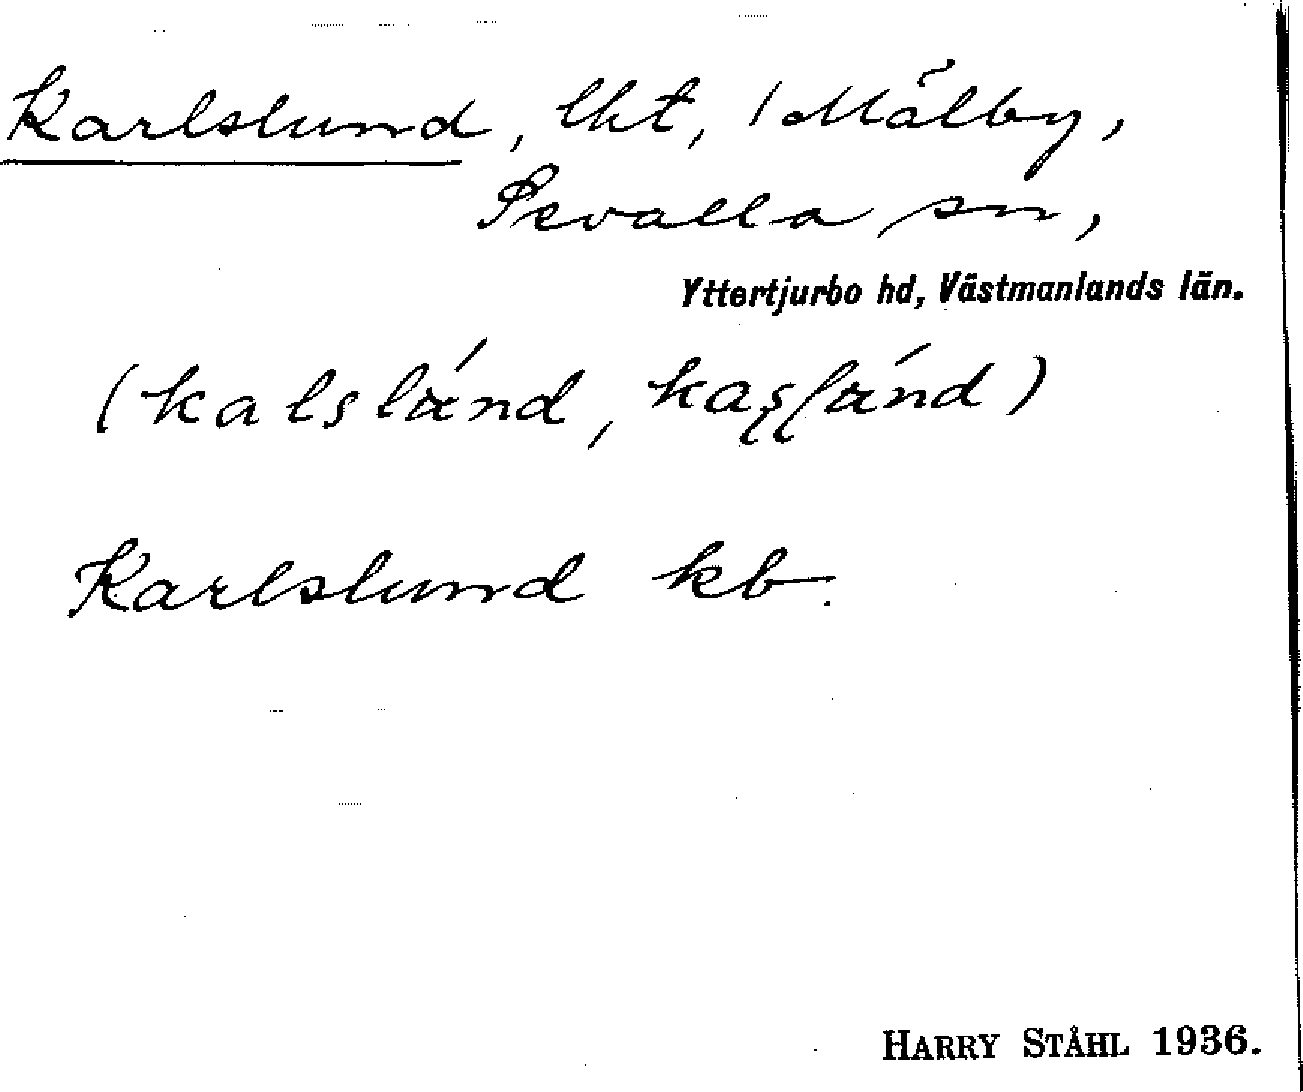 Karlslund, lht, / Målby,
Sevalla sn,
Yttertjurbo hd, Västmanlands län.
(kalslánd,
Karlslund kb.
HARRY STÅHL 1936.